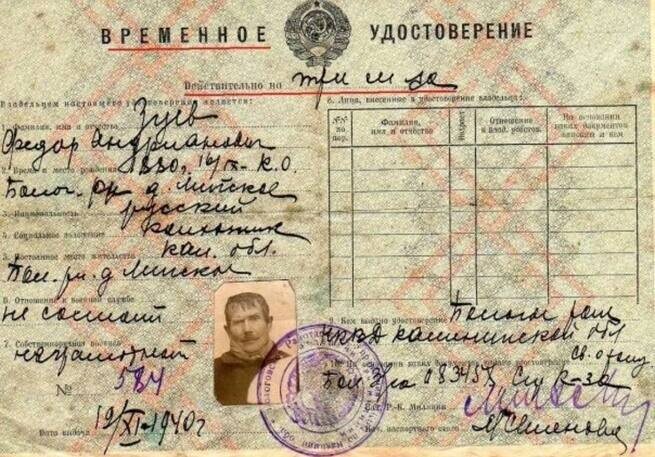 ВРЕМЕННОЕ УДОСТОВЕРЕНИЕ
Действительно на три м-ца
Владельцем настоящего удостоверения является:
1. Фамилия, имя и отчество Зуев
Федор Андрианович
2. Время и место рождения 1880, 16/IX- К.О.
Болог. р-н д.Minское
3. Национальность русский
4. Социальное положение колхозник
5. Постоянное место жительства кал. обл.
Бол. р-н. д.
6. Отношение к военной службе
не состоит
7. Собственноручная подпись
неграмотный
№ 584
Дата выдачи 19/XI-1940г
8. Лица, внесенные в удостоверение владельца:
№№ по пор.
Фамилия, имя и отчество
Возраст
Отношение к влад. удостов.
На основании каких документов вписан в нем
9. Кем выдано удостоверение
НКВД Калининской обл
10. На основании каких документов выдано удостоверение
Нач. Р.-К. Милиции
Нач. паспортного стола Семенова